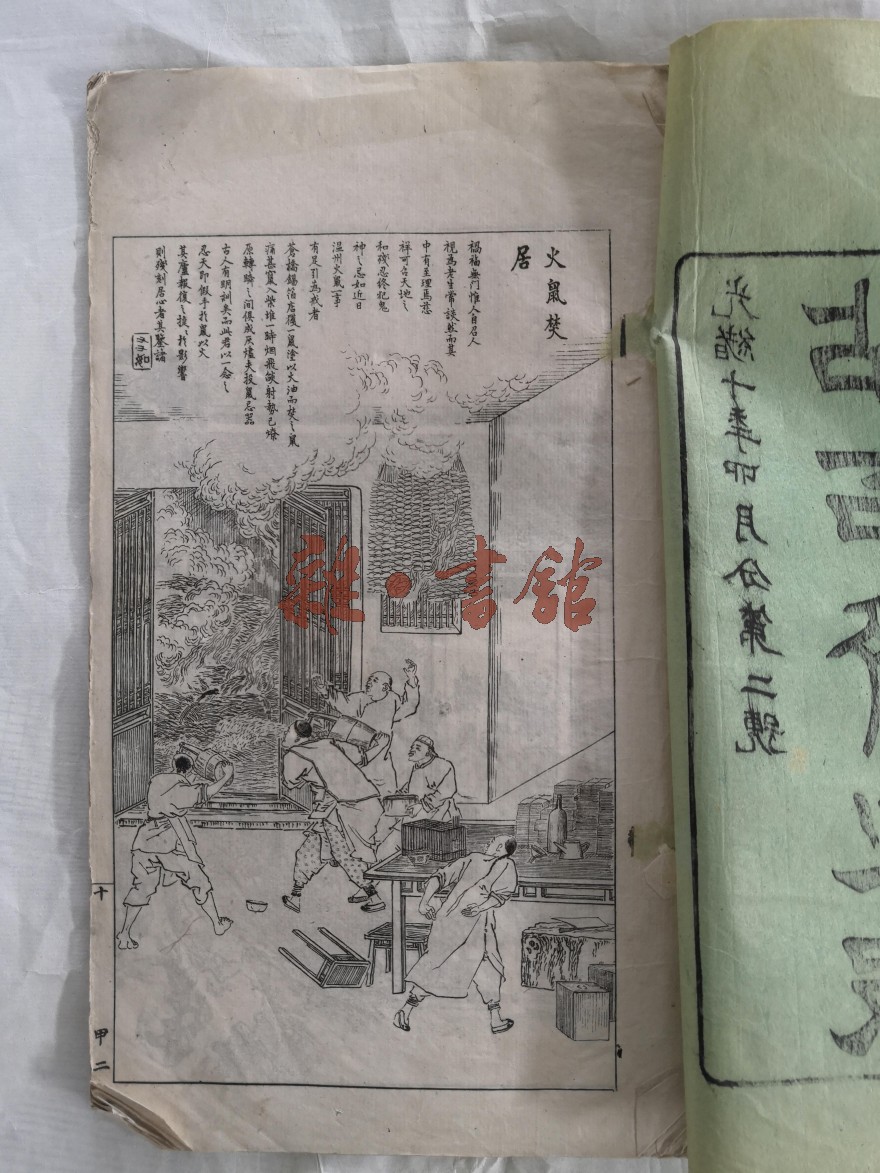 火鼠焚
居
禍福無門惟人自召人
視為老生常談然而其
中有至理焉慈
祥可召天地之
和殘忍終犯鬼
神之忌如近日
溫州火鼠一事
有足引為戒者
蒼橋錫箔店獲一鼠塗以火油而焚之鼠
痛甚竄入柴堆一時烟飛燄射勢已燎
原轉瞬之間俱成灰燼夫投鼠忌器
古人有明訓矣而此君以一念之
忍天即假手於鼠以火
其廬報復之捷〻於影響
則殘刻居心者其鑒諸
十
甲二
光緒十年四月分第二號
雜·書館